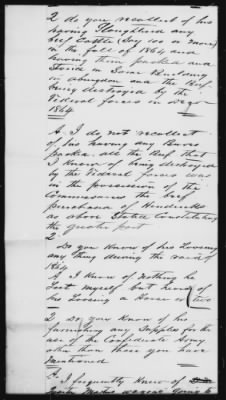 2 do you recollect of his
having Slaughtered any
beef Cattle (Say 100 or more)
in the fall of 1864 and
having them packed and
Stored in Some Building
in abingdon and the Beef
being destroyed by the
Federal forces in Decr
1864
A. I do not recollect
of his having any Beeves
packed. all the Beef that
I Knew of being destroyed
by the Federal forces was
in the possession of the
Commissaries the beef
purchased of Hendricks
as above Stated Constituting
the greater part
2
Do you Know of his Loosing
any thing during the raid of
1864
A I Know of nothing he
Lost myself but heard of
his Loosing a Horse or two
2. do you Know of his
furnishing any Supplies for the
use of the Confederate Army
other than those you have
mentioned
A.
I frequently Knew of
wagons going to